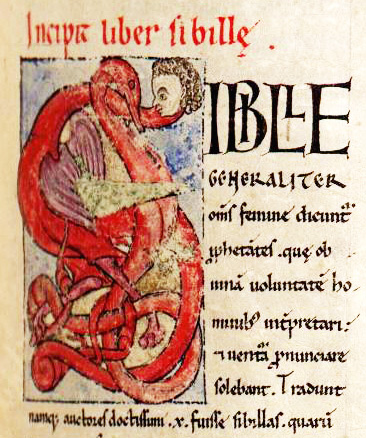 Incipit liber sibillę.
SIBILLE
GENERALITER
om̅s femine dicunt᷑
ꝓphetątes. quę ob
uinā uoluntatē ho-
minibꝰ int̅pretari.
⁊ uentā ꝓnunciare
solebant. Tradunt
namq; auctores doctissimi .x. fuisse sibillas. quarū